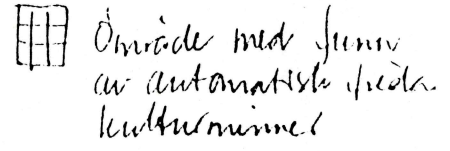 Område med funn
av automatisk freda
kulturminner